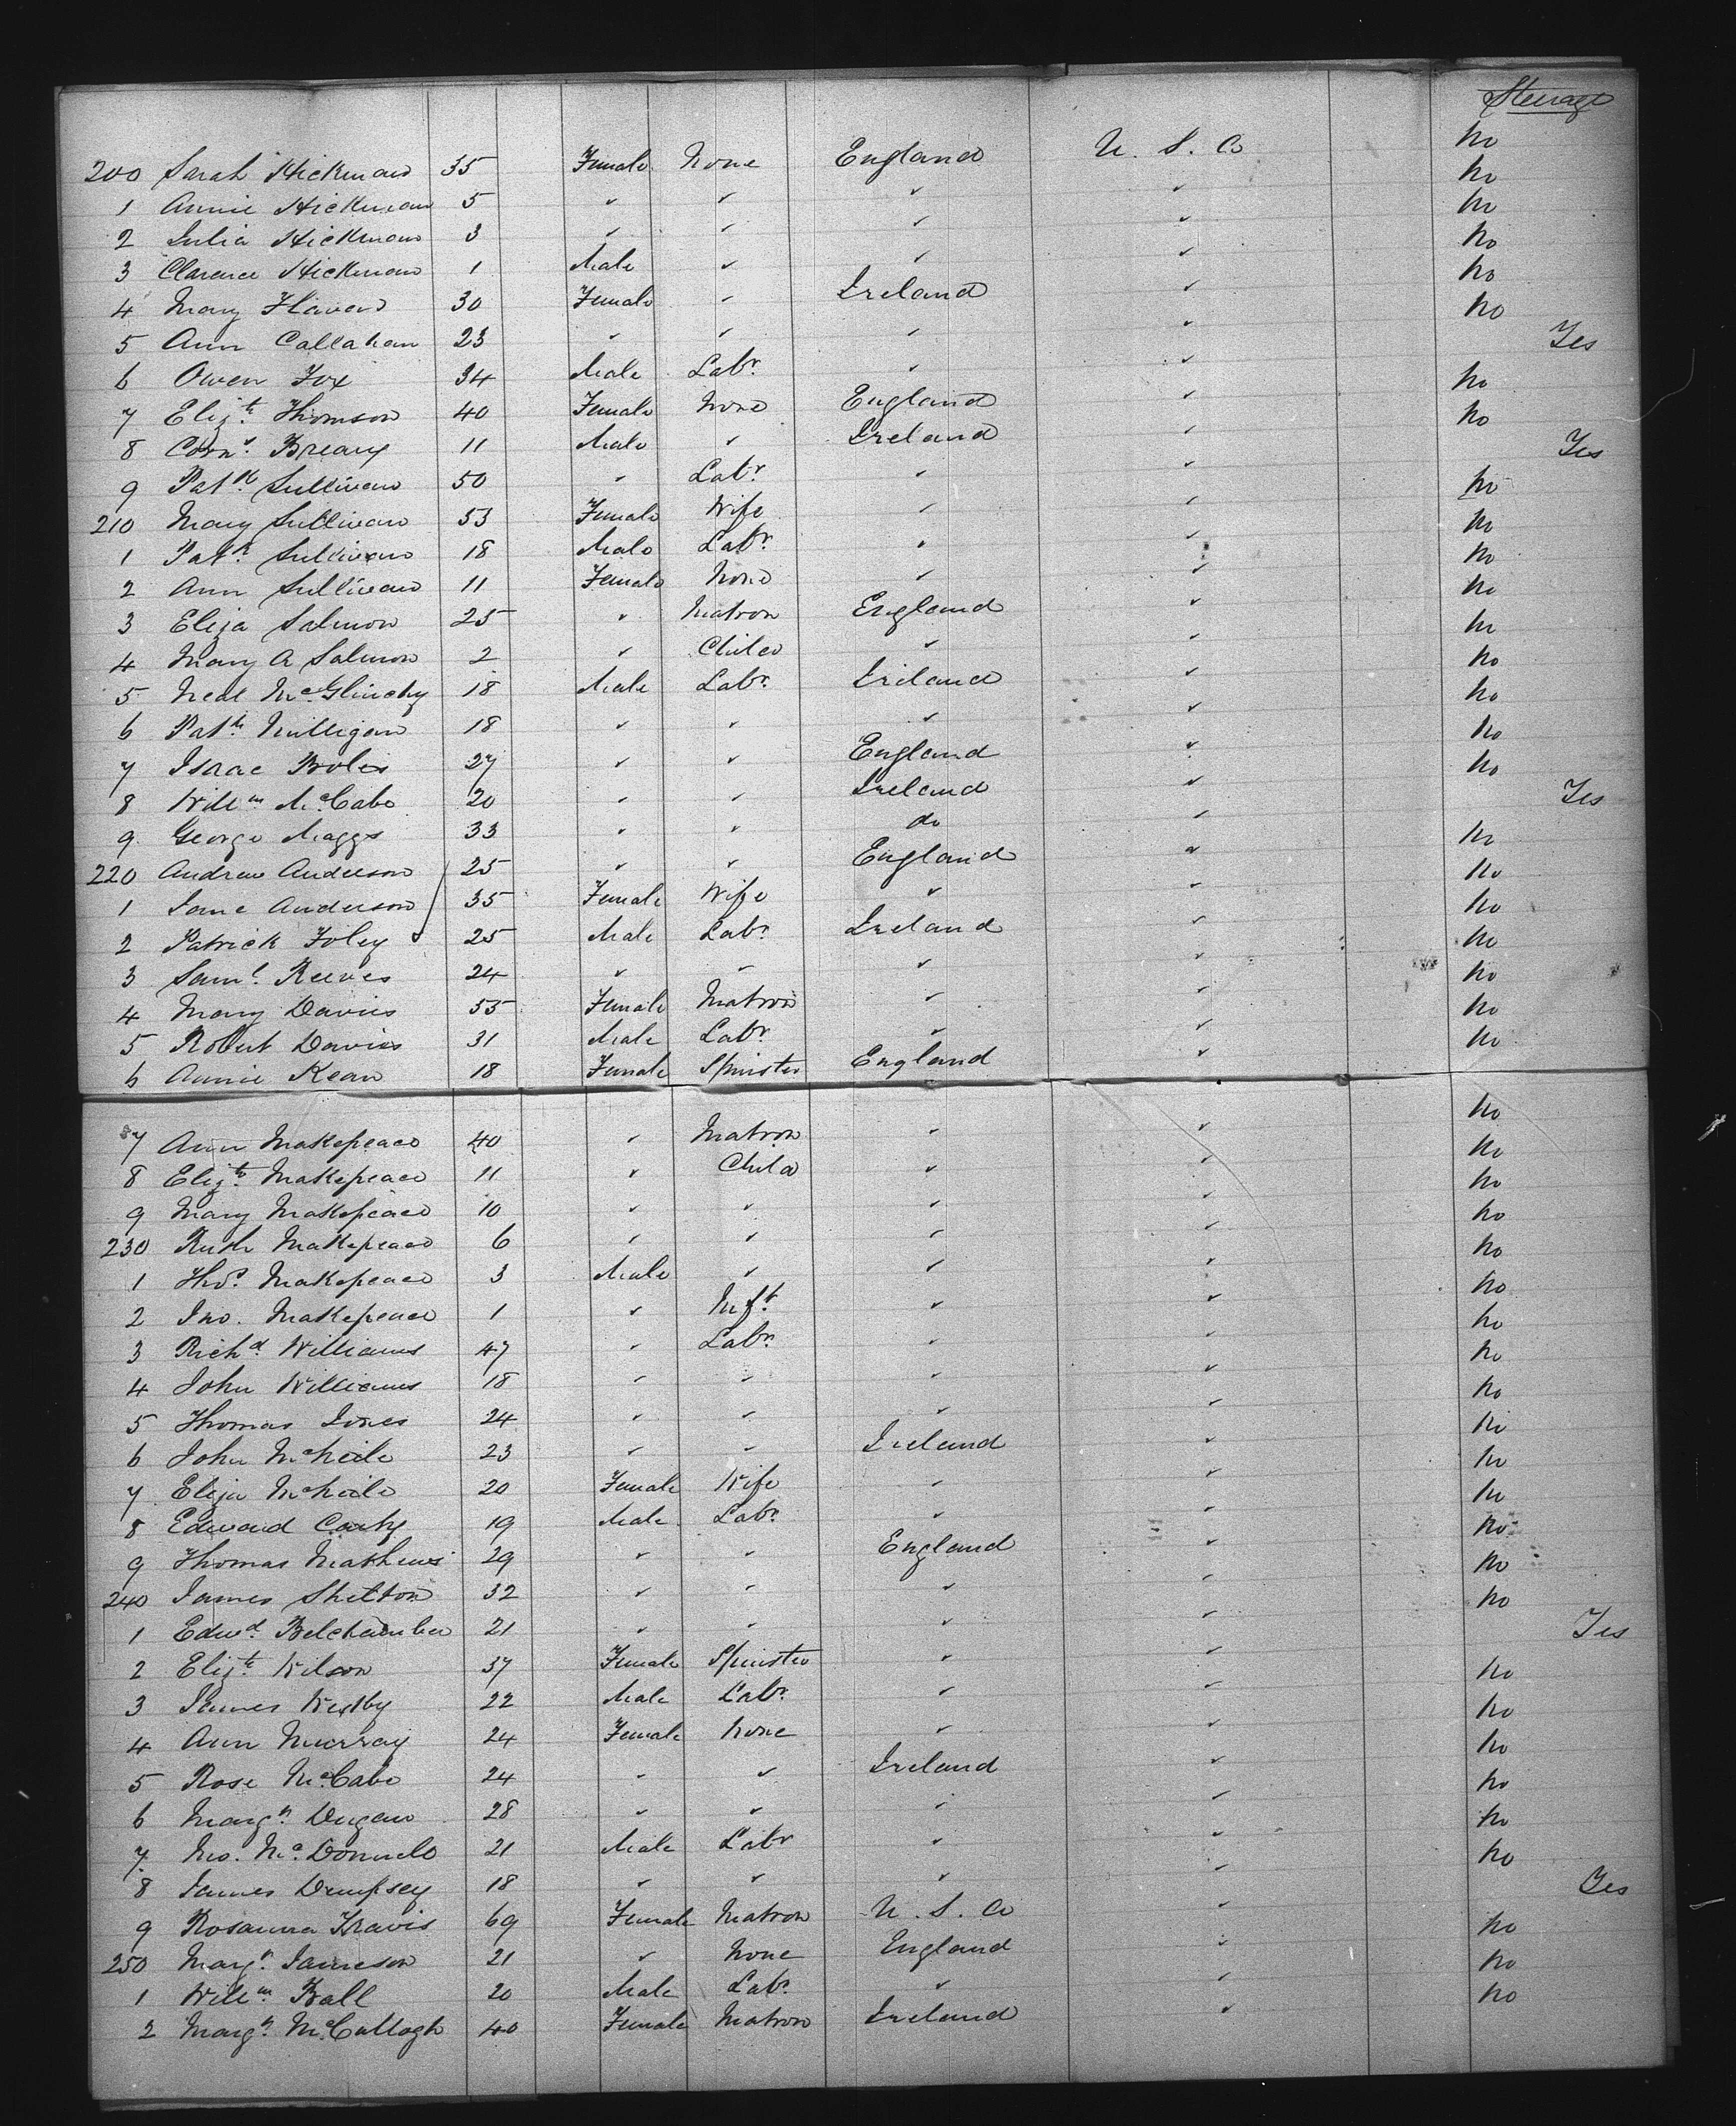 Steerage
200 Sarah Hickman 35 Female None England U. S. A No
1 Annie Hickman 5 " " " " No
2 Julia Hickman 3 " " " " No
3 Clarence Hickman 1 Male " " " No
4 Mary 30 Female " Ireland " No
5 Ann Callahan 23 " " " " No
6 Owen Fox 34 Male Labr. " " Yes
7 Elizth. Thomson 40 Female None England " No
8 Corns. Breary 11 Male " Ireland " No
9 Patk. Sullivan 50 " Labr. " " Yes
210 Mary Sullivan 53 Female Wife " " No
1 Patk. Sullivan 18 Male Labr. " " No
2 Ann Sullivan 11 Female None " " No
3 Eliza Salmon 25 " Matron England " No
4 Mary A Salmon 2 " Child " " No
5 Neal McGlinchy 18 Male Labr. Ireland " No
6 Patk. Mulligan 18 " " " " No
7 Isaac 27 " " England " No
8 Willm McCabe 20 " " Ireland " No
9 George Maggs 33 " " do " Yes
220 Andrew Anderson 25 " " England " No
1 Jane Anderson 35 Female Wife " " No
2 Patrick Foley 25 Male Labr. Ireland " No
3 Saml. Reeves 24 " " " " No
4 Mary Davies 55 Female Matron " " No
5 Robert Davies 31 Male Labr. " " No
6 Annie Kean 18 Female Spinster England " No
7 Ann Makepeace 40 " Matron " " No
8 Elizth. Makepeace 11 " Child " " No
9 Mary Makepeace 10 " " " " No
230 Ruth Makepeace 6 " " " " No
1 Thos. Makepeace 3 Male " " " No
2 Jno. Makepeace 1 " Inft. " " No
3 Richd. Williams 47 " Labr. " " No
4 John Williams 18 " " " " No
5 Thomas Jones 24 " " " " No
6 John McNeile 23 " " Ireland " No
7 Eliza McNeile 20 Female Wife " " No
8 Edward Carty 19 Male Labr. " " No
9 Thomas Mathews 29 " " England " No
240 James Shelton 32 " " " " No
1 Edwd. Belchamber 21 " " " " No
2 Elizth. Wilson 37 Female Spinster " " Yes
3 James 22 Male Labr. " " No
4 Ann Murray 24 Female None " " No
5 Rose McCabe 24 " " Ireland " No
6 Margt. Dugan 28 " " " " No
7 McDonnell 21 Male Labr " " No
8 James Dempsey 18 " " " " No
9 Rosanna Travis 69 Female Matron U. S. A " Yes
250 Margt. Jameson 21 " None England " No
1 Willm. Ball 20 Male Labr. " " No
2 Margt. McCullogh 40 Female Matron Ireland " No